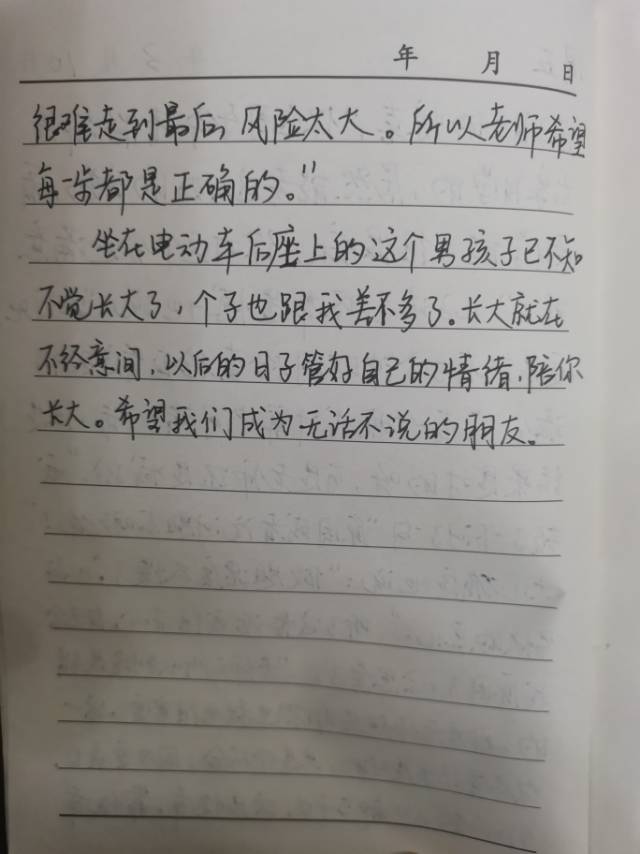 年 月 日
很难走到最后，风险太大。所以老师希望
每一步都是正确的。"
坐在电动车后座上的这个男孩子已不知
不觉长大了，个子也跟我差不多了。长大就在
不经意间，以后的日子管好自己的情绪，陪你
长大。希望我们成为无话不说的朋友。